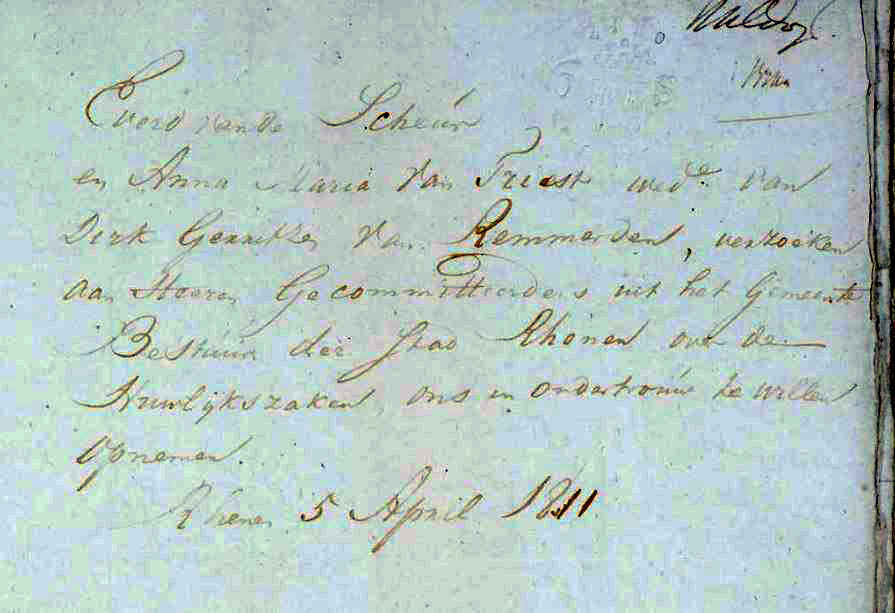 Everd van de Scheur
en Anna Maria van Triest wede van
Dirk Gerritsen van Remmerden, verzoeken
aan Heeren Gecommitteerders uit het Gemeente
Bestuur der Stad Rhenen over de
Huwlijkszaken, ons in ondertrouw te willen
opnemen.
Rhenen 5 April 1811